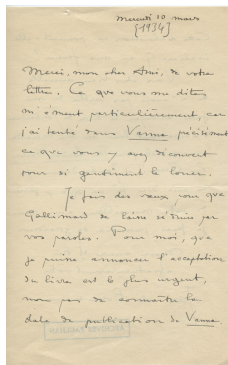 mercredi 10 mars
[1934]
Merci, mon cher Ami, de votre
lettre. Ce que vous me dites
m'émeut particulièrement, car
j'ai tenté dans Vanna précisément
ce que vous y avez découvert
pour si gentiment le louer.
Je fais des vœux pour que
Gallimard se laisse séduire par
vos paroles. Pour moi, que
je puisse annoncer l'acceptation
du livre est le plus urgent,
non pas de connaître la
date de publication de Vanna.